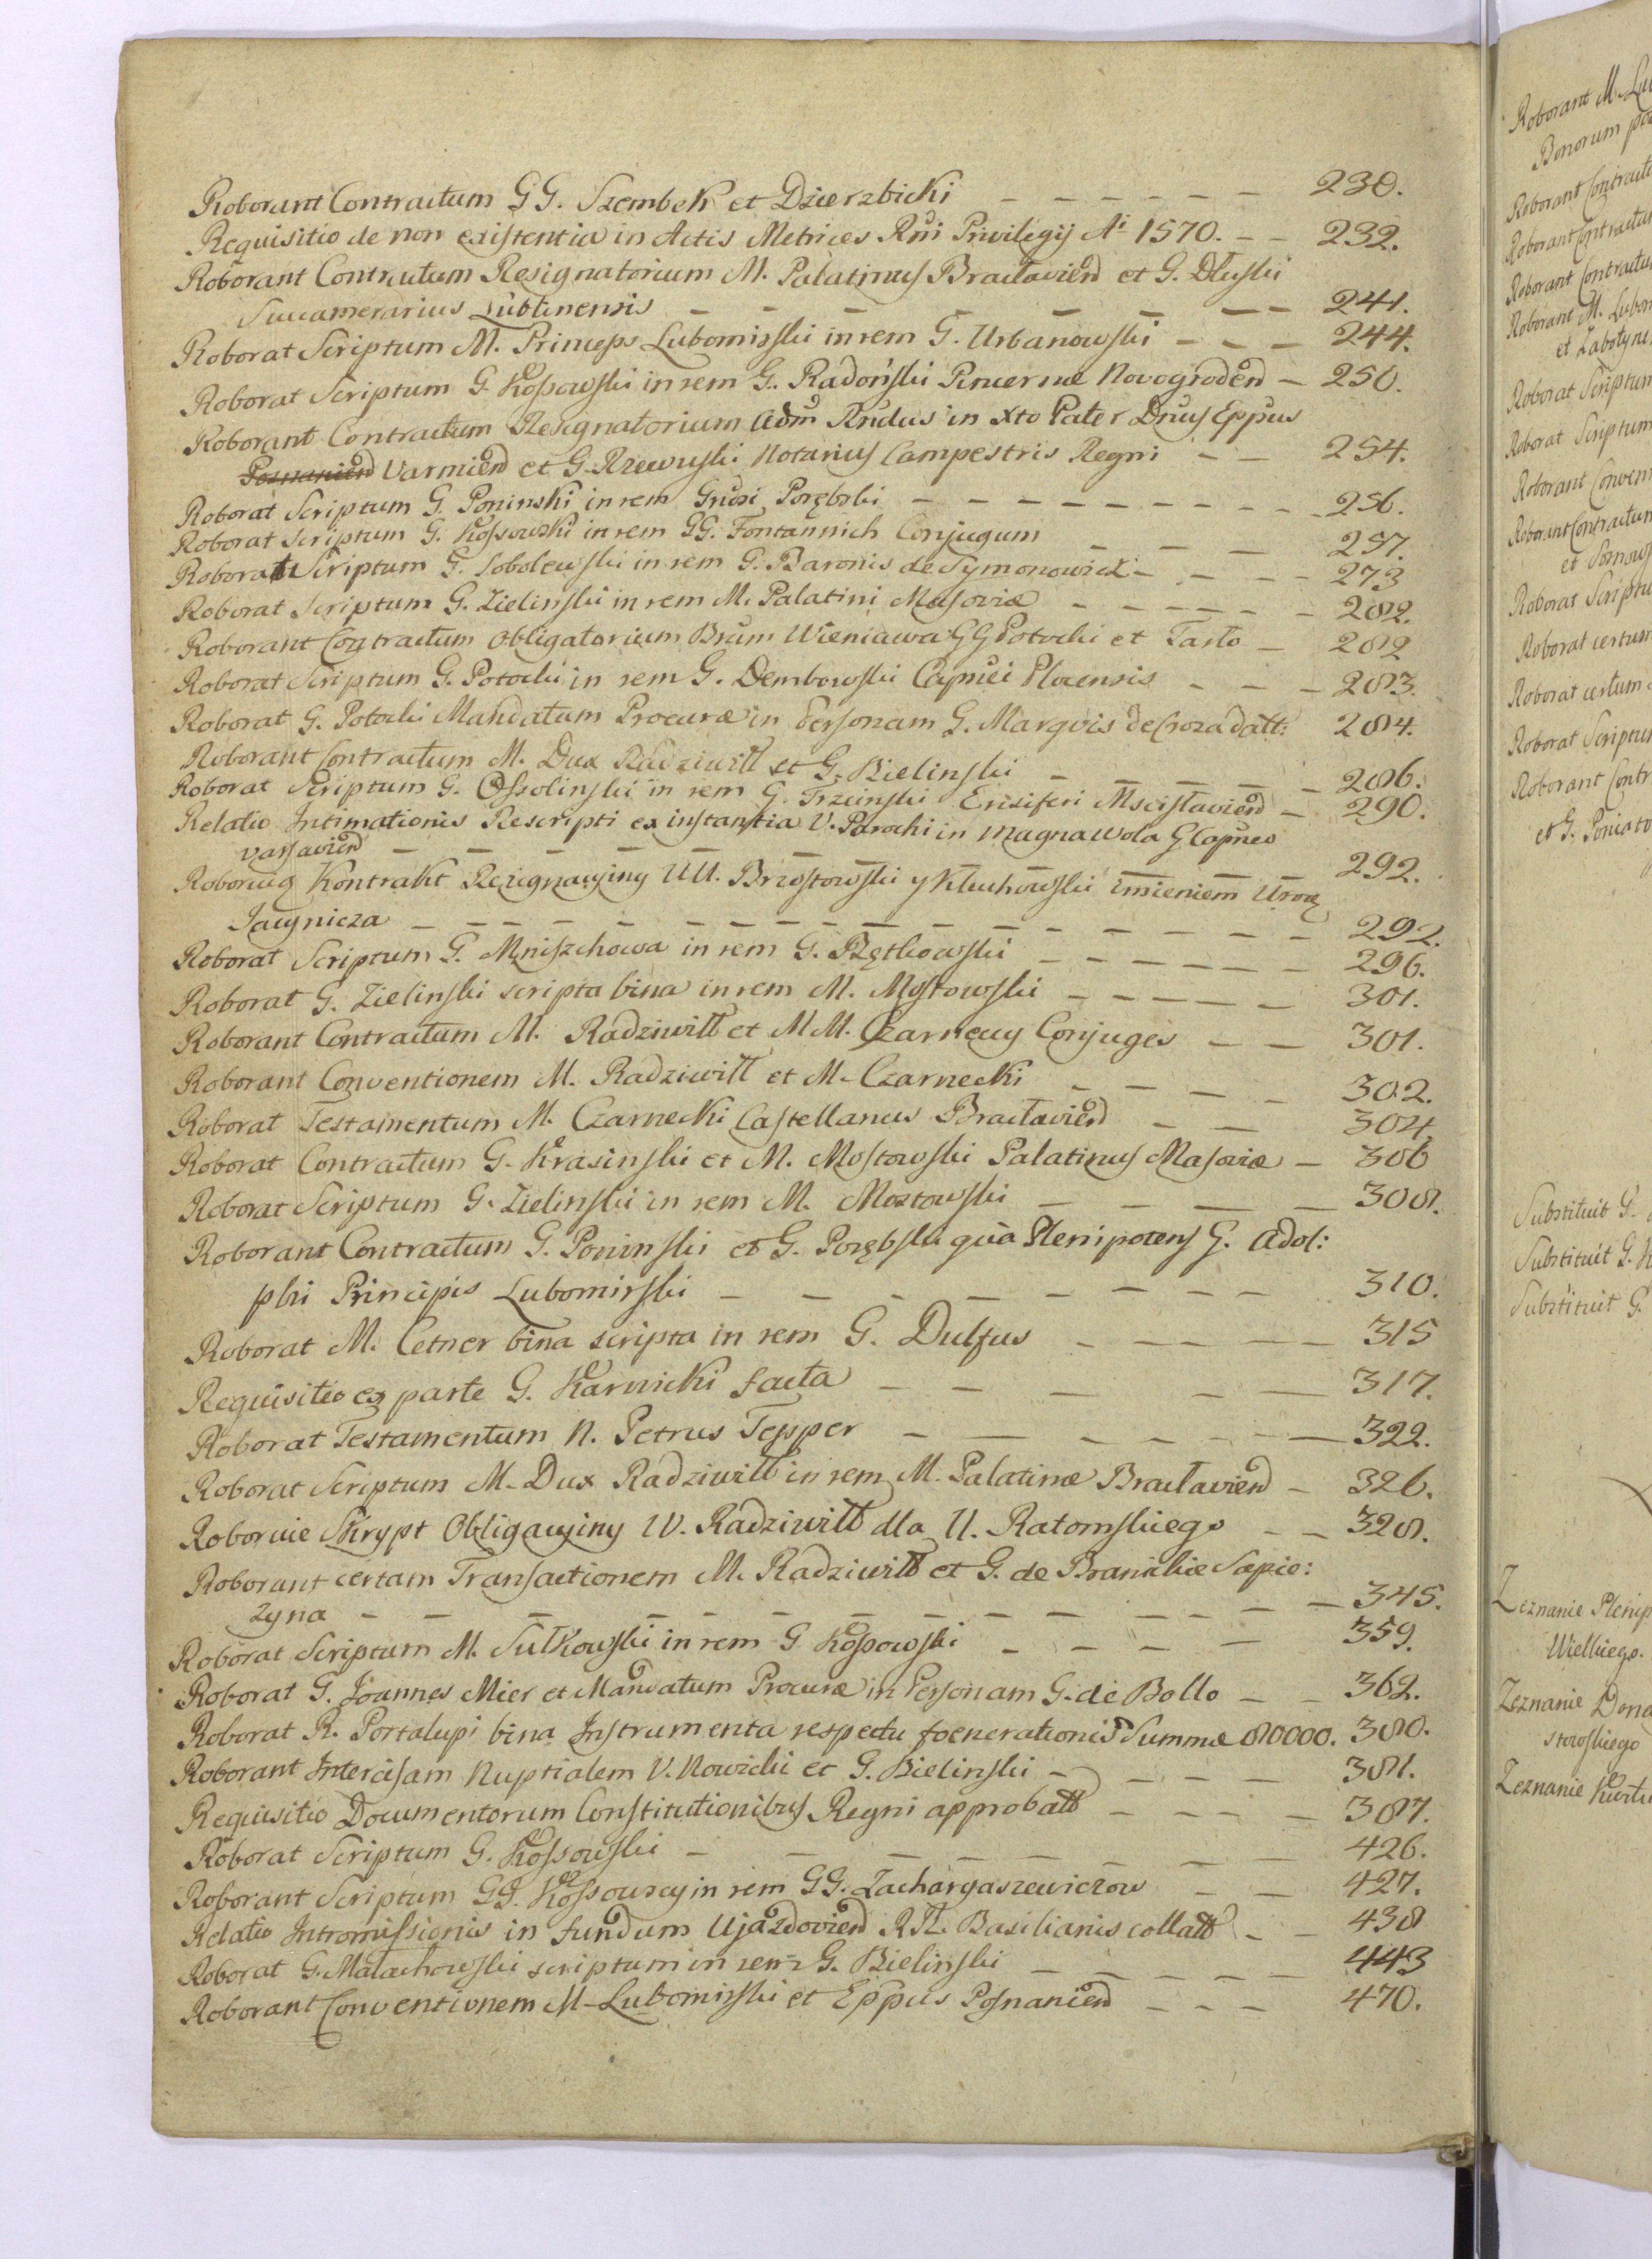 Roborant Contractum GG. Szembek et Dzierzbicki — — — — — — 230.
Requisitio de non existentia in Actis Metrices Rni Privilegij Ai 1570. — — 232.
Roborant Contractum Resignatorium M. Palatinus Braclaviend et G. Dłuski
Succamerarius Lublinensis — — — — — — — 241.
Roborat Scriptum M. Princeps Lubomirski in rem G. Urbanowski — — — 244.
Roborat Scriptum G. Kossowski in rem G. Radoński Pincernæ Novogrodend — 250.
Roborant Contractum Resignatorium Adm Rndus in Xto Pater Dnus Eppus
Posnaniend Varmiend et G. Rzewuski Notarius Campestris Regni — — 254.
Roborat Scriptum G. Poninski in rem Gnosi Porębski — — — — — — — — 256.
Roborat Scriptum G. Kossowski in rem GG. Fontannich Conjugum — — — 257.
Roborat Scriptum G. Sobolewski in rem G. Baronis de Symonowicz — — — — 273
Roborat Scriptum G. Zielinski in rem M. Palatini Masoviæ — — — — — — 282.
Roborant Contractum Obligatorium Brum Wieniawa GG Potocki et Tarło — 282
Roborat Scriptum G. Potocki in rem G. Dembowski Capnei Plocensis — — — 283.
Roborat G. Potocki Mandatum Procuræ in Personam G. Marqvis de Croza datt: 284.
Roborant Contractum M. Dux Radziwiłł et G. Bielinski — — — — 286.
Roborat Scriptum G. Ossolinski in rem G. Trzcinski Ensiferi Mscislaviend — 290.
Relatio Intimationis Rescripti ex instantia V. Parochi in Magna Wola G Capneo
Varsaviend — — — — — — — — — — 292.
Roboruią Kontrakt Rezignacyiny UU. Brzostowski y Kluchowski imieniem Uroz
Jacynicza — — — — — — — — — — — — — — 292.
Roborat Scriptum G. Mniszchowa in rem G. Rzętkowski — — — — — — 296.
Roborat G. Zielinski scripta bina in rem M. Mostowski — — — — — 301.
Roborant Contractum M. Radziwiłł et MM. Czarneccy Conjuges — — 301.
Roborant Conventionem M. Radziwiłł et M. Czarnecki — — — — 302.
Roborat Testamentum M. Czarnecki Castellanus Braclaviend — — 304.
Roborat Contractum G. Krasinski et M. Mostowski Palatinus Masoviæ — 306
Roborat Scriptum G. Zielinski in rem M. Mostowski — — — — 308.
Roborant Contractum G. Poninski et G. Porębski qua Plenipotens G. Adol:
phi Principis Lubomirski — — — — — — — — 310.
Roborat M. Cetner bina scripta in rem G. Dulfus — — — — — 315
Requisitio ex parte G. Karnicki facta — — — — — 317.
Roborat Testamentum N. Petrus Tepper — — — — — — — 322.
Roborat Scriptum M. Dux Radziwiłł in rem M. Palatinæ Braclaviend — 326.
Roboruie Skrypt Obligacyiny W. Radziwiłł dla U. Ratomskiego — — 328.
Roborant certam Transactionem M. Radziwiłł et G. de Branickie Sapie:
zyna — — — — — — — — — — — — — 345.
Roborat Scriptum M. Sułkowski in rem G Kossowski — — — — 359.
Roborat G. Joannes Mier et Mandatum Procuræ in Personam G. de Bollo — — 362.
Roborat R. Portalupi bina Instrumenta respectu foenerationis Summæ 80000. 380.
Roborant Intercisam Nuptialem V. Nowicki et G. Bielinski — — — — 381.
Requisitio Documentorum Constitutionibus Regni approbatt — — — — 387.
Roborat Scriptum G. Kossowski — — — — — — — 426.
Roborant Scriptum GG. Kossowscy in rem GG. Zachargaszewiczow — — 427.
Relatio Intromissionis in fundum Ujazdoviend RR. Basilianis collatt — — 438
Roborat G. Małachowski scriptum in rem G. Bielinski — — — — — 443
Roborant Conventionem M. Lubomirski et Eppus Posnaniend — — — 470.
Roborant M. Lu
Bonorum
Roborant Contract
Roborant Contractu
Roborant Contractu
Roborant M. Lubom
et Zabotyn
Roborat Scriptum
Roborat Scriptum
Roborant Conven
Roborant Contractum
Roborat Scriptu
Roborat certum
Roborat certum
Roborat Scriptu
Roborant Contr
et G. Poniato
Substituit G.
Substituit G. K
Substituit G.
Zeznanie Plenip
Wielkiego.
Zeznanie Dona
stowskiego
Zeznanie Kwitu